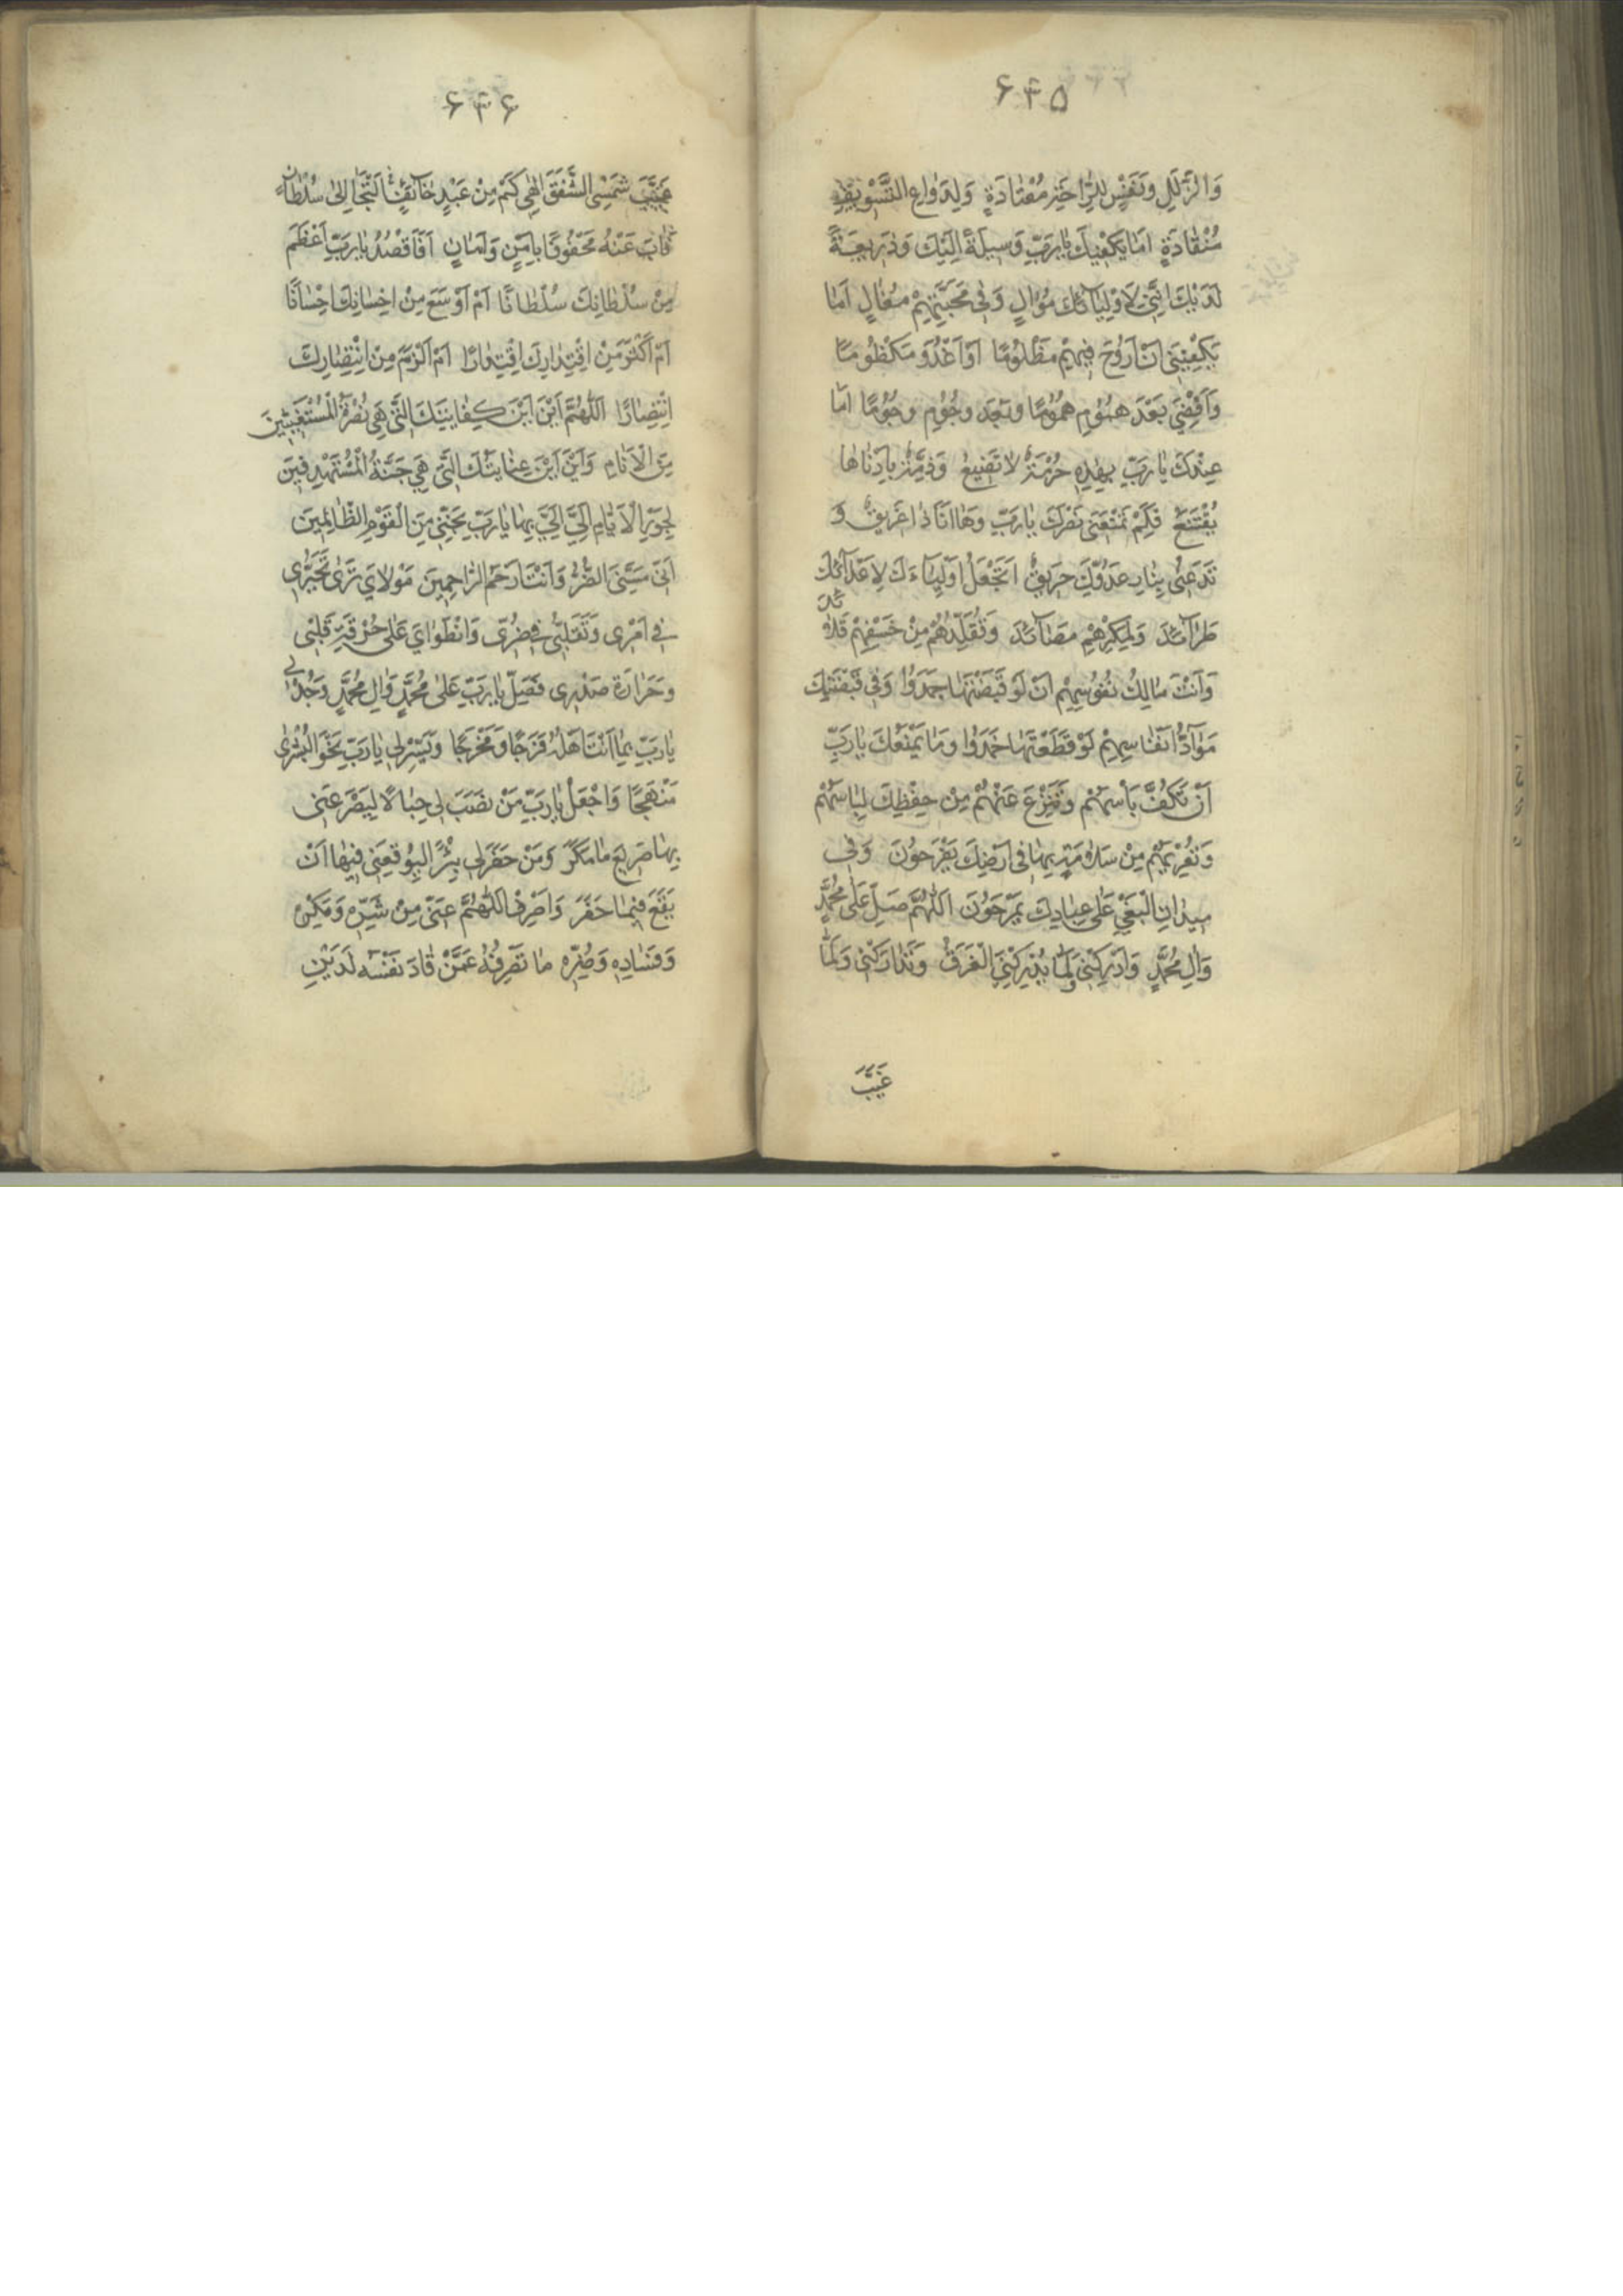 ۶۳۵
وَالزَّلَلِ وَنَفْسٍ لِلرّاحَةِ مُعْتادَةٍ وَلِدَواعِ التَّسْويفِ
مُنْقادَةٍ اَمايَكْفيكَ يارَبِّ وَسيلَةً اِلَيْكَ وَذَريعَةً
لَدَيْكَ اِنَّني لِاَوْلِيآئِكَ مُوالٍ وَفي مَحَبَّتِهِمْ مُغالٍ اَما
يَكْفيني اَنْ اَرُوحَ فيهِمْ مَظْلُومًا اَوْ اَغْدُوَ مَكْظُومًا
وَاَقْضِيَ بَعْدَ هُمُومٍ هُمُومًا وبَعْدَ وجُومٍ وجُومًا اَما
عِنْدَكَ يا رَبِّ بِهذِهِ حُرْمَةٌ لا تَضيعُ وَذِمَّةٌ بِاَدْناها
يُقْتَنَعُ فَلِمَ تَمْنَعُني نَصْرَكَ يارَبِّ وَها اَنَا ذا غَريقٌ وَ
تَدَعُني بِنارِ عَدُوِّكَ حَريقٌ اَتَجْعَلُ اَوْلِيآءَكَ لِاَعْدآئِكَ
طَرآئِدَ وَلِمَكْرِهِمْ مَصآئِدَ وَتُقَلِّدُهُمْ مِنْ خَسْفِهِمْ قَلائِدَ
وَاَنْتَ مالِكُ نُفُوسِهِمْ اَنْ لَوْ قَبَضْتَها جَمَدُوا وَفي قَبْضَتِكَ
مَوآدُّ اَنْفاسِهِمْ لَوْ قَطَعْتَها خَمَدُوا وَما يَمْنَعُكَ يارَبِّ
اَنْ تَكُفَّ بَاْسَهُمْ وتَنْزِعَ عَنْهُمْ مِنْ حِفْظِكَ لِباسَهُمْ
وَتُعْرِيَهُمْ مِنْ سَلامَةٍ بِها في اَرْضِكَ يَفْرَحُونَ وَفي
مَيْدانِ الْبَغْيِ عَلى عِبادِكَ يَمْرَحُونَ اَللّهُمَّ صَلِّ عَلى مُحَمَّدٍ
وَالِ مُحَمَّدٍ وَاَدْرِكْني وَلَمّا يُدْرِكْنِيَ الْغَرَقُ وَتَدارَكْني وَلَمّا
غَيَّبَ
۶۳۶
غَيَّبَ شَمْسِي الشَّفَقَ اِلهي كَمْ مِنْ عَبْدٍ خآئِفٍ اِلْتَجَا اِلى سُلْطانٍ
فَابَ عَنْهُ مَحْفُوفًا بِاَمْنٍ وَاَمانٍ اَفَاَقْصُدُ يارَبِّ اَعْظَمَ
مِنْ سُلْطانِكَ سُلْطانًا اَمْ اَوْسَعَ مِنْ اِحْسانِكَ اِحْسانًا
اَمْ اَكْثَرَ مِنْ اقْتِدارِكَ اقْتِدارًا اَمْ اَكْرَمَ مِنْ انْتِصارِكَ
انْتِصارًا اَللّهُمَّ اَيْنَ اَيْنَ كِفايَتِكَ الَّتي هِيَ نُصْرَةُ الْمُسْتَغيثينَ
مِنَ الْاَنامِ وَاَيْنَ اَيْنَ عِنايَتُكَ الَّتي هِيَ جَنَّةُ الْمُسْتَهْدِفينَ
لِجَوْرِ الْاَيّامِ اِلَيَّ اِلَيَّ بِها يارَبِّ نَجِّني مِنَ الْقَوْمِ الظّالِمينَ
اَنّي مَسَّنِيَ الضُّرُّ وَاَنْتَ اَرْحَمُ الرّاحِمينَ مَوْلايَ تَرى تَحَيُّري
في اَمْري وَتَقَلُّبي في ضُرّي وَانْطِوايَ عَلى حُرْقَةِ قَلْبي
وحَرارَةِ صَدْري فَصَلِّ يا رَبِّ عَلى مُحَمَّدٍ وَالِ مُحَمَّدٍ وَجُدْ لي
يارَبِّ بِما اَنْتَ اَهْلُهُ فَرَجًا وَمَخْرَجًا وَيَسِّرْ لي يارَبِّ نَحْوَ الْبُشْرى
مَنْهَجًا وَاجْعَلْ يارَبِّ مَنْ نَصَبَ لي حِبالًا لِيَصْرَعَني
بِها صَريعَ ما مَكَرَ وَمَنْ حَفَرَ لي بِئْرًا لِيُوقِعَني فيها اَنْ
يَقَعَ فيما حَفَرَ وَاصْرِفِ اللّهُمَّ عَنّي مِنْ شَرِّهِ وَمَكْرِهِ
وَفَسادِهِ وَضُرِّهِ ما تَصْرِفُهُ عَمَّنْ قادَ نَفْسَهُ لَدَيْنِ